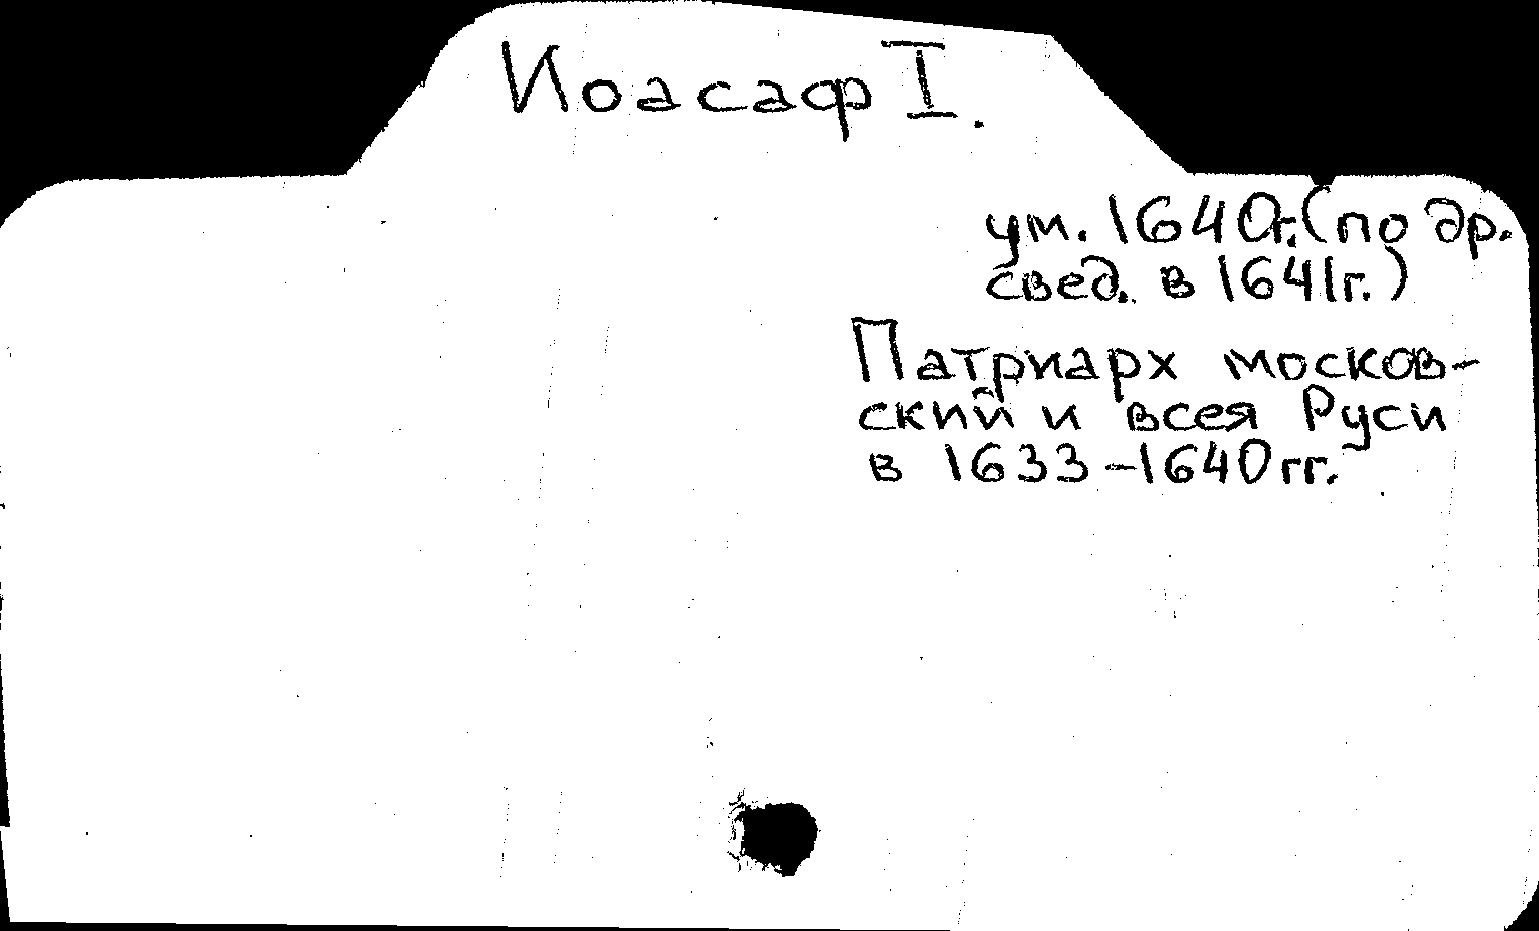 Иоасаф I.
ум. 1640г. (по др.
свед. в 1641г.)
Патриарх москов-
ский и всея Руси
в 1633-1640гг.